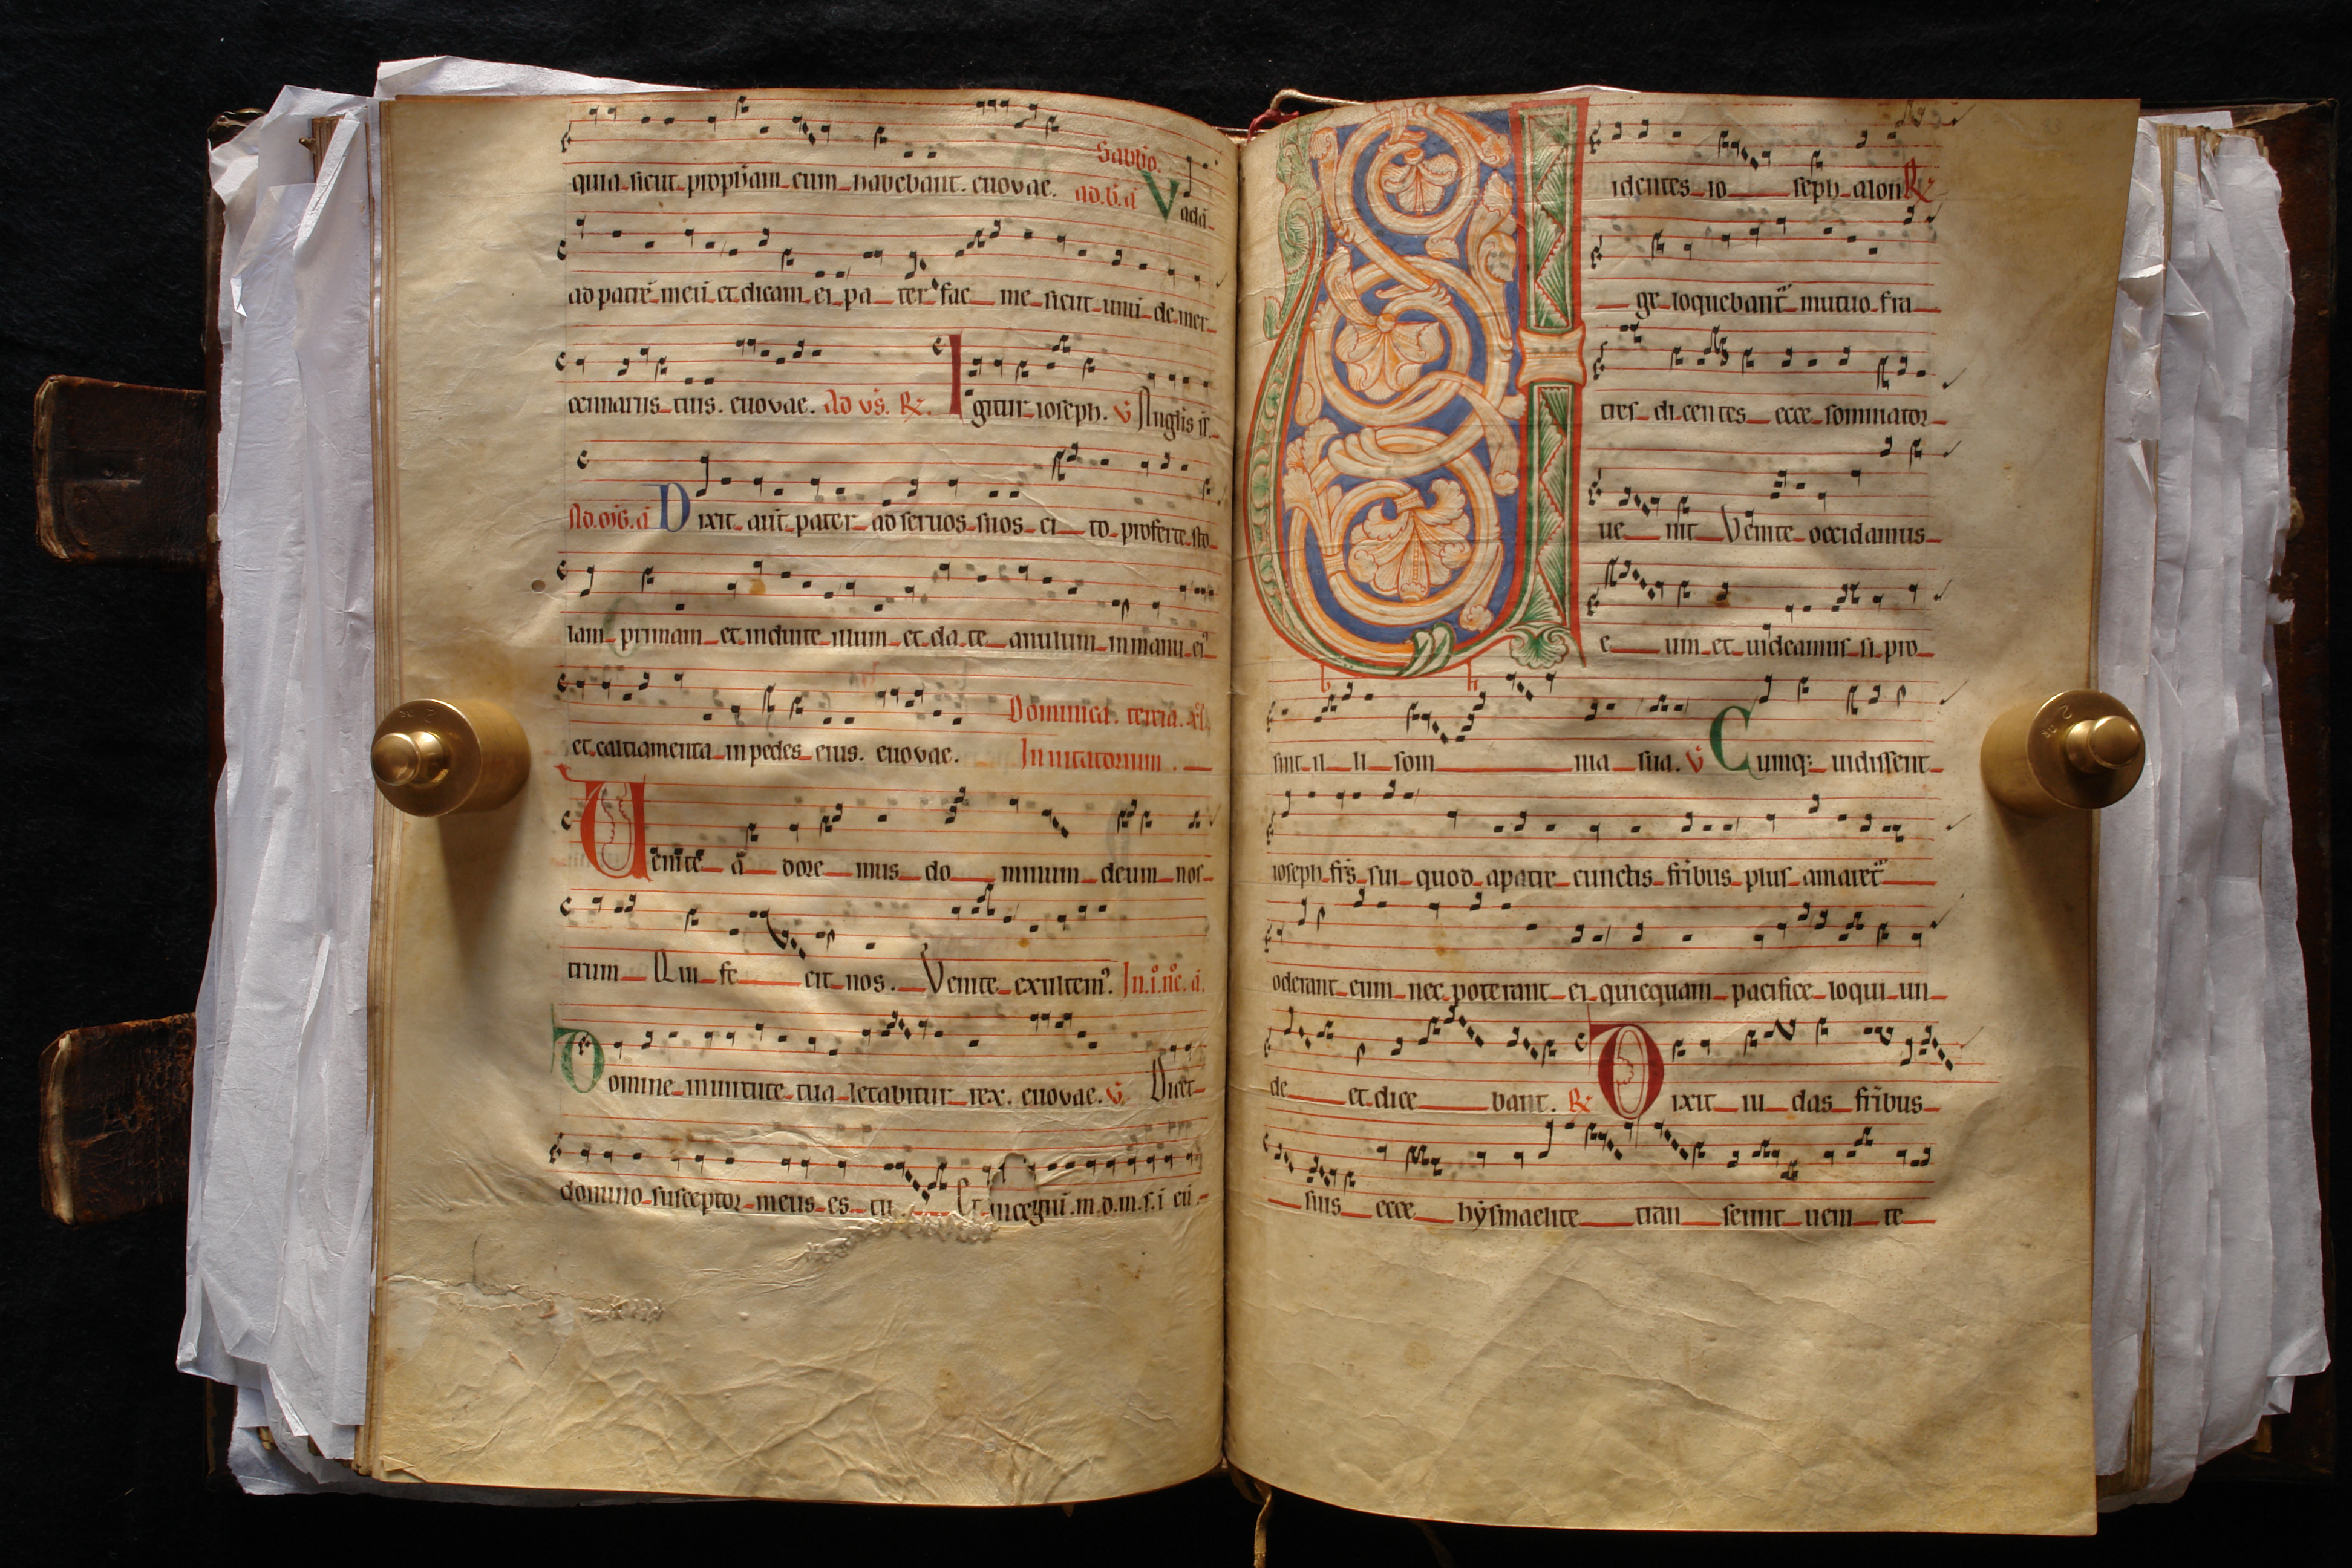 quia sicut proph̄am eum habebant. euovae.
Sabb̄o.
ad. b̄. aᷓ Vadā
ad patrē meū et dicam ei pa ter fac me sicut unū de mer
cennariis tuis. euovae. Ad vs̄. ℟. Igitur ioseph. ℣ Anglis
Ad. aᷓ Dixit aūt pater ad seruos suos ci to proferte sto
lam primam et induite illum et da te anulum in manu ei᷒
et calciamenta in pedes eius. euovae.
Dominica. tercia. xl
Inuitatorium.
Uenite a dore mus do minum deum nos
trum Qui fe cit nos. Venite exultem᷒. In. i᷒. n᷒c. aᷓ.
Domine in uirtute tua letabitur rex. euovae. ℣. Dicet
domino susceptor meus es tu. Et
Uidentes io seph a lon ℟
ge loquebant᷑ mutuo fra
tres di cen tes ecce somniator
ue nit Venite occidamus
e um et uideamus si pro
sint il li som nia sua. ℣ Cumq; uidissent
ioseph fr̄s sui quod a patre cunctis fr̄ibus plus amaret᷑
oderant eum nec poterant ei quicquam pacifice loqui un
de et dice bant. ℟ Dixit iu das fr̄ibus
suis ecce hysmaelite tran seunt ueni te